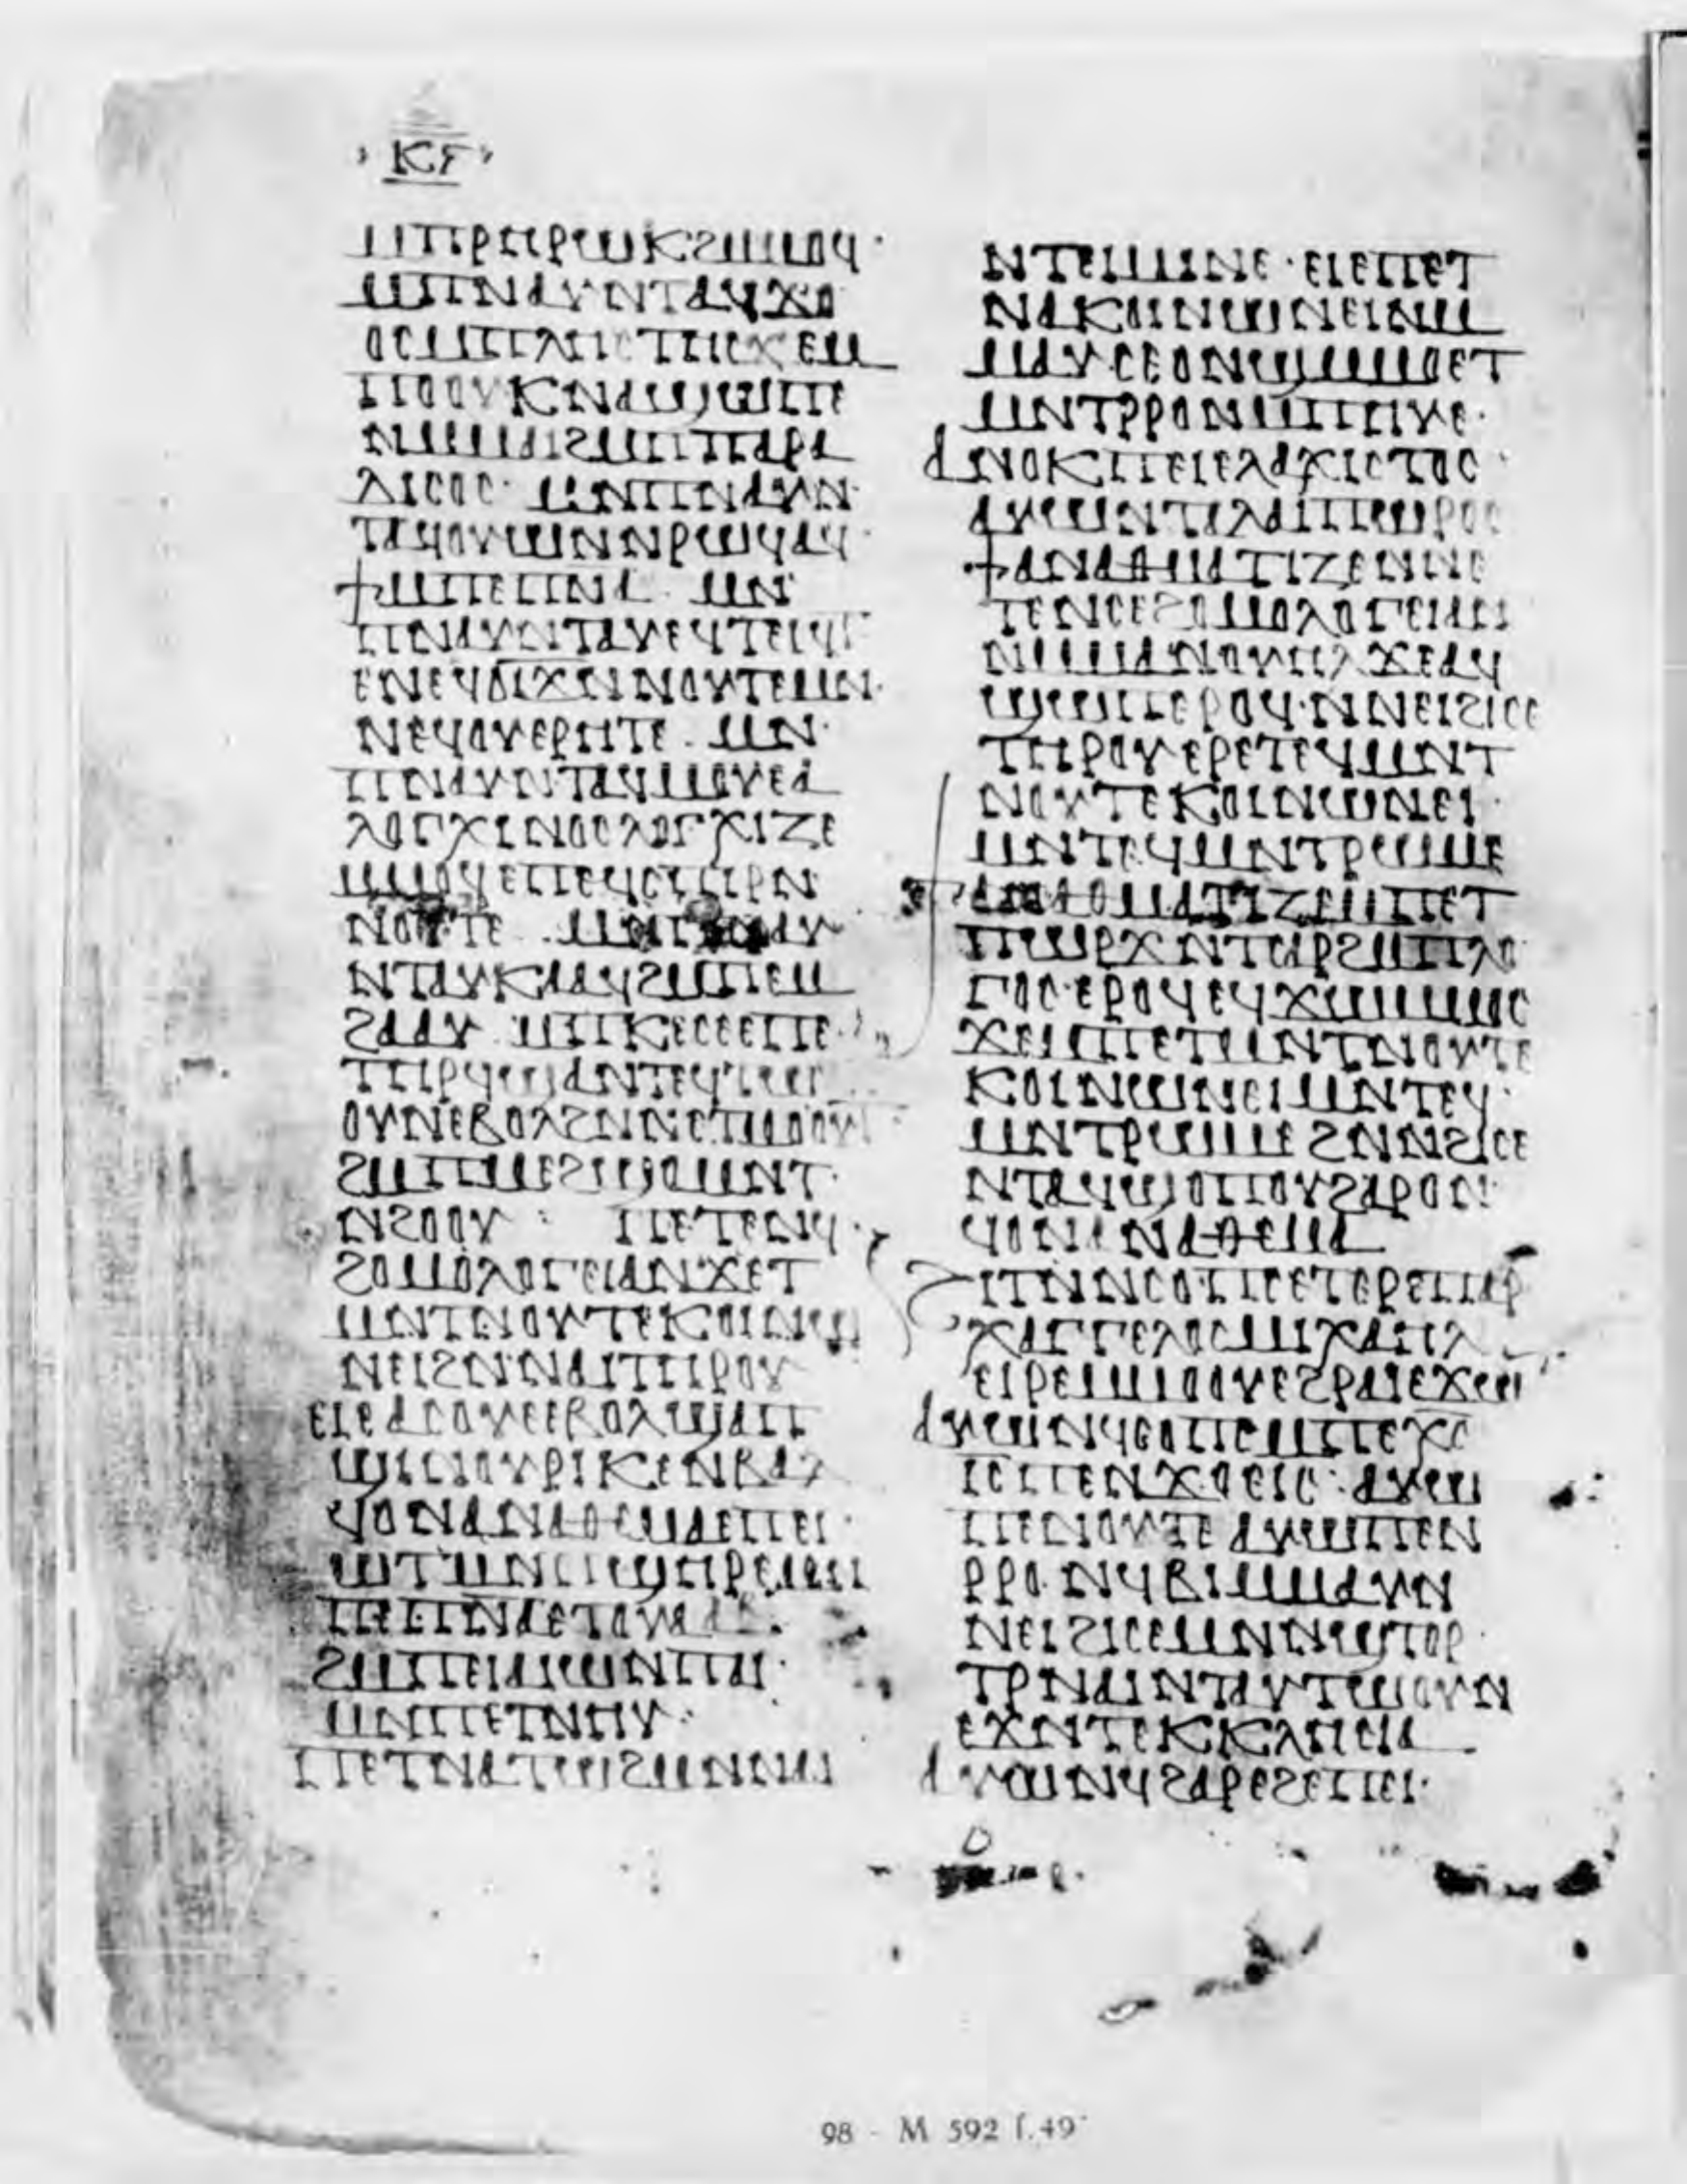 ⲕⲋ
ⲙⲡⲣⲏⲣⲱⲕϩⲙⲙⲟϥ·
ⲙⲡⲛⲁⲩⲛⲧⲁϥϫⲟ
ⲟⲥⲙⲡⲗⲏⲥⲧⲏⲥϫⲉⲙ
ⲡⲟⲟⲩⲕⲛⲁϣⲱⲡⲉ
ⲛⲙⲙⲁⲓϩⲙⲡⲡⲁⲣⲁ
ⲇⲓⲥⲟⲥ· ⲙⲛⲡⲛⲁⲩⲛ
ⲧⲁϥⲟⲩⲱⲛⲛⲣⲱϥⲁϥ
ϯⲙⲡⲉⲡⲛⲁ ⲙⲛ
ⲡⲛⲁⲩⲛⲧⲁⲩⲉϥⲧⲉⲓϥⲧ
ⲉⲛⲉϥϭⲓϫⲛⲛⲟⲩⲧⲉⲙⲛ·
ⲛⲉϥⲟⲩⲉⲣⲏⲧⲉ ⲙⲛ
ⲡⲛⲁⲩⲛⲧⲁⲡⲙⲟⲩⲉⲁ
ⲗⲟⲅⲭⲓⲛⲟⲥⲗⲟⲅⲭⲓⲍⲉ
ⲙⲙⲟϥⲉⲡⲉϥⲥⲡⲓⲣⲛ
ⲛⲟⲩⲧⲉ ⲙⲛⲡⲛⲁⲩ
ⲛⲧⲁⲩⲕⲁⲁϥϩⲙⲡⲉⲙ
ϩⲁⲁⲩ ⲙⲡⲕⲉⲥⲉⲉⲡⲉ
ⲧⲏⲣϥϣⲁⲛⲧⲉϥⲧⲱ
ⲟⲩⲛⲉⲃⲟⲗϩⲛⲛⲉⲧⲙⲟⲟⲩⲧ
ϩⲙⲡⲙⲉϩϣⲟⲙⲛⲧ
ⲛϩⲟⲟⲩ : ⲡⲉⲧⲉⲛϥ
ϩⲟⲙⲟⲗⲟⲅⲉⲓⲁⲛϫⲉⲧ
ⲙⲛⲧⲛⲟⲩⲧⲉⲕⲟⲓⲛⲱ
ⲛⲉⲓϩⲛⲛⲁⲓⲧⲏⲣⲟⲩ
ⲉⲓⲉⲁⲥⲟⲩⲉⲉⲃⲟⲗϣⲁⲡ
ϣⲓⲛⲟⲩⲣⲓⲕⲉⲛⲃⲁⲗ
ϥⲟⲛⲁⲛⲁⲑⲉⲙⲁⲉⲡⲉⲓ
ⲱⲧⲙⲛⲡϣⲏⲣⲉⲙⲛ
ⲡⲉⲡⲛⲁⲉⲧⲟⲩⲁⲁⲃ·
ϩⲙⲡⲉⲓⲁⲓⲱⲛⲡⲁⲓ
ⲙⲛⲡⲉⲧⲛⲏⲩ·
ⲡⲉⲧⲛⲁⲧⲱϩⲙⲛⲛⲁⲓ
ⲛⲧⲉⲓⲙⲓⲛⲉ· ⲉⲓⲉⲡⲉⲧ
ⲛⲁⲕⲟⲓⲛⲱⲛⲉⲓⲛⲙ
ⲙⲁⲩⲥⲉⲟⲛϣⲙⲙⲟⲉⲧ
ⲙⲛⲧⲣⲣⲟⲛⲙⲡⲏⲩⲉ·
ⲁⲛⲟⲕⲡⲉⲓⲉⲗⲁⲭⲓⲥⲧⲟⲥ
ⲁⲩⲱⲛⲧⲁⲗⲁⲓⲡⲱⲣⲟⲥ
ϯⲁⲛⲁⲑⲙⲁⲧⲓⲍⲉⲛⲛⲉ
ⲧⲉⲛⲥⲉϩⲟⲙⲟⲗⲟⲅⲉⲓⲁⲛ
ⲛⲙⲙⲁⲛⲟⲩⲏⲗϫⲉⲁϥ
ϣⲱⲡⲉⲣⲟϥ·ⲛⲛⲉⲓϩⲓⲥⲉ
ⲧⲏⲣⲟⲩⲉⲣⲉⲧⲉϥⲙⲛⲧ
ⲛⲟⲩⲧⲉⲕⲟⲓⲛⲱⲛⲉⲓ
ⲙⲛⲧⲉϥⲙⲛⲧⲣⲱⲙⲉ
ϯⲁⲛⲁⲑⲙⲁⲧⲓⲍⲉⲙⲡⲉⲧ
ⲡⲱⲣϫⲛⲧⲥⲁⲣϩⲙⲡⲗⲟ
ⲅⲟⲥ·ⲉⲣⲟϥⲉϥϫⲱⲙⲙⲟⲥ
ϫⲉⲙⲡⲉⲧⲙⲛⲧⲛⲟⲩⲧⲉ
ⲕⲟⲓⲛⲱⲛⲉⲓⲙⲛⲧⲉϥ
ⲙⲛⲧⲣⲱⲙⲉϩⲛⲛϩⲓⲥⲉ
ⲛⲧⲁϥϣⲟⲡⲟⲩϩⲁⲣⲟⲛ
ϥⲟⲛⲁⲛⲁⲑⲉⲙⲁ
ϩⲓⲧⲛⲛⲥⲟⲡⲥⲉⲧⲉⲣⲉⲡⲁⲣ
ⲭⲁⲅⲅⲉⲗⲟⲥⲙⲓⲭⲁⲏⲗ
ⲉⲓⲣⲉⲙⲙⲟⲟⲩⲉϩⲣⲁⲓⲉϫⲱⲛ
ⲁⲩⲱⲛϥⲥⲟⲡⲥⲙⲡⲉⲭⲥ
ⲓⲥⲡⲉⲛϫⲟⲉⲓⲥ: ⲁⲩⲱ
ⲡⲉⲛⲟⲩⲧⲉ ⲁⲩⲱⲡⲉⲛ
ⲣⲣⲟ ⲛϥϥⲓⲙⲙⲁⲩⲛ
ⲛⲉⲓϩⲓⲥⲉⲙⲛⲛϣⲧⲟⲣ
ⲧⲣⲛⲁⲓⲛⲧⲁⲩⲧⲱⲟⲩⲛ
ⲉϫⲛⲧⲉⲕⲕⲗⲏⲥⲓⲁ
ⲁⲩⲱⲛϥϩⲁⲣⲉϩⲉⲡⲉⲓ
98 - M 592 f. 49